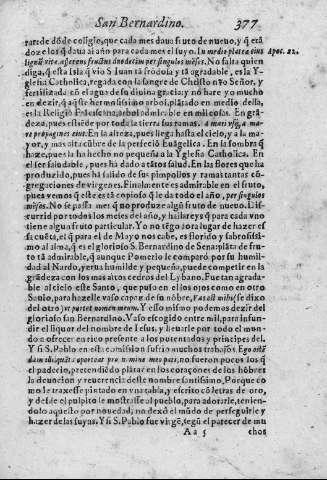 San Bernardino. 377
rar: de dōde colige, que cada mes daua fruto de nueuo, y q̃ està
doze los q̃ daua al año para cada mes el suyo. In medio plateæ eius Apoc. 22.
lignũ vitæ, afferens fructus duodecim per singulos mẽses. No falta quien
diga, q̃ esta Isla q̃ vio S Iuan tā frōdosa y tā agradable, es la Y-
glesia Catholica, regada con la sangre de Christo nr̃o Señor, y
fertilizada cō el agua de su diuina gracia: y no hare yo mucho
en dezir, q̃ aq̃ste hermosissimo arbol, plātado en medio della,
es la Religiō Frāciscana, arbol admirable en mil cosas. En grā-
deza, pues estiēde por toda la tierra sus ramas. A mari vsq̃, a ma-
re propagines eius. En la alteza, pues llega hasta el cielo, y a la ma-
yor, y mas alta cūbre de la perfeciō Euāgelica. En la sombra q̃
haze, pues la ha hecho no pequeña a la Yglesia Catholica. En
el ser saludable, pues ha dado a tātos salud. En las flores que ha
produzido, pues hā salido de sus pimpollos y ramas tantas cō-
gregaciones de virgenes. Finalmente es admirable en el fruto,
pues vemos q̃ le es tā copioso q̃ le da todo el año, per singulos
mẽses. No se passa mes q̃ no produze algũ fruto de nueuo. Dis-
currid por todos los meses del año, y hallareys q̃ para cada vno
tiene algũ fruto particular. Yo no tēgo aora lugar de hazer es-
sa cuēta, el q̃ para el de Mayo nos cabe, es florido, y sabrosissi-
mo al alma, q̃ es el glorioso S. Bernardino de Sena, plāta de fru-
to tā admirable, q̃ aunque Pomerio le comparò por su humil-
dad al Nardo, yerua humilde y pequeña, puede competir en la
grādeza con los mas altos cedros del Lybano. Fue tan agrada-
ble al cielo este Santo, que puso en el los ojos como en otro
Saulo, para hazelle vaso capaz de su nōbre, Vas est mihi, se dixo
del otro, vt portet nomen meum. Y esso mismo podemos dezir del
glorioso san Bernardino. Vaso escogido entre mil, para infun-
dir el liquor del nombre de Iesus, y lleuarle por todo el mun-
do a ofrecer en rico presente a los potentados y principes del.
Y si S. Pablo en esta comission sufrio muchos trabajos. Ego ostē-
dam illi quāta oporteat pro nomine meo pati, no fueron pocos los q̃
el padecio, pretendiēdo plātar en los coraçones de los hōbres
la deuocion y reuerencia deste nombre santissimo. Porque co
mo le traxesse pintado en vna tabla, y escrito cō letras de oro,
y desde el pulpito le mostrasse al pueblo, para adorarle, tenien-
dolo aquesto por nouedad, no dexò el mūdo de perseguirle y
hazer de las suyas. Y si S. Pablo fue virgē, segũ el parecer de mu
Aa 5 chos